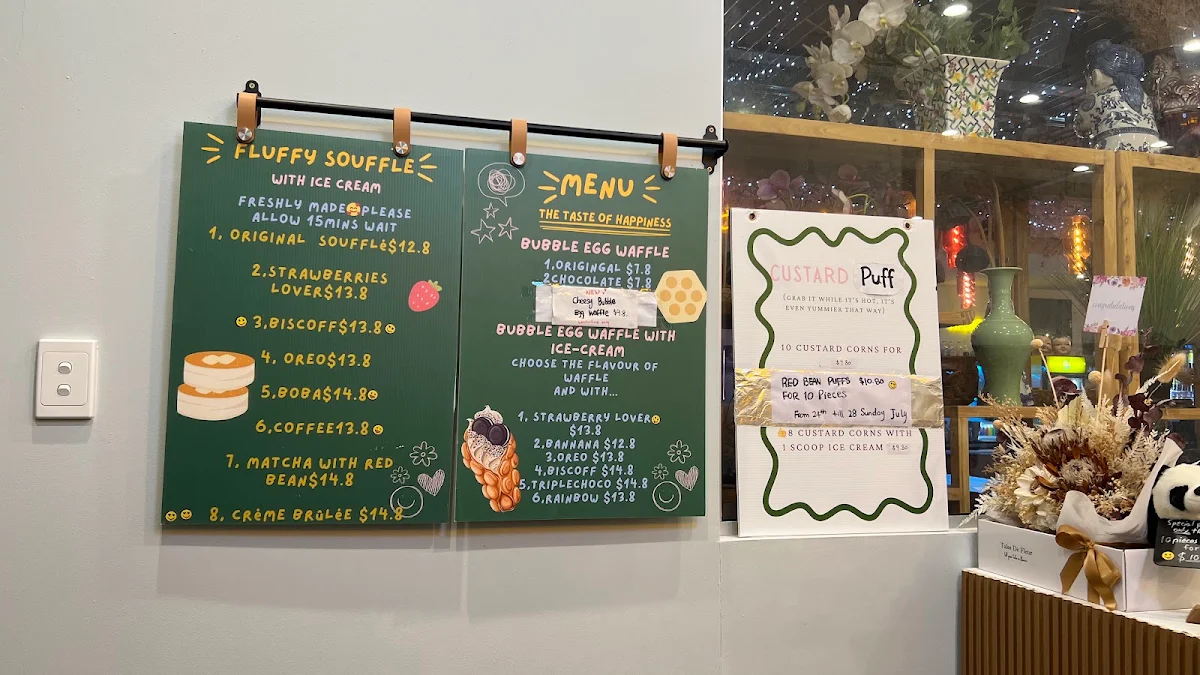 FLUFFY SOUFFLE
WITH ICE CREAM
FRESHLY MADE PLEASE
ALLOW 15MINS WAIT
1. ORIGINAL SOUFFLÉ$12.8
2.STRAWBERRIES
LOVER$13.8
3.BISCOFF$13.8
4. OREO$13.8
5.BOBA$14.8
6.COFFEE13.8
7. MATCHA WITH RED
BEAN$14.8
8. CRÈME BRÛLÉE $14.8
MENU
THE TASTE OF HAPPINESS
BUBBLE EGG WAFFLE
1.ORIGINGAL $7.8
2CHOCOLATE $7.8
Cheesy Bubble
Egg Waffle $9.8.
BUBBLE EGG WAFFLE WITH
ICE-CREAM
CHOOSE THE FLAVOUR OF
WAFFLE
AND WITH...
1. STRAWBERRY LOVER
$13.8
2.BANNANA $12.8
3.OREO $13.8
4.BISCOFF $14.8
5.TRIPLECHOCO $14.8
6.RAINBOW $13.8
CUSTARD Puff
(GRAB IT WHILE IT'S HOT, IT'S
EVEN YUMMIER THAT WAY)
10 CUSTARD CORNS FOR
$9.80
RED BEAN PUFFS $10.80
FOR 10 Pieces
From 24th till 28 Sunday July
8 CUSTARD CORNS WITH
1 SCOOP ICE CREAM $9.80
congratulations
Special
10 pieces
for
$10